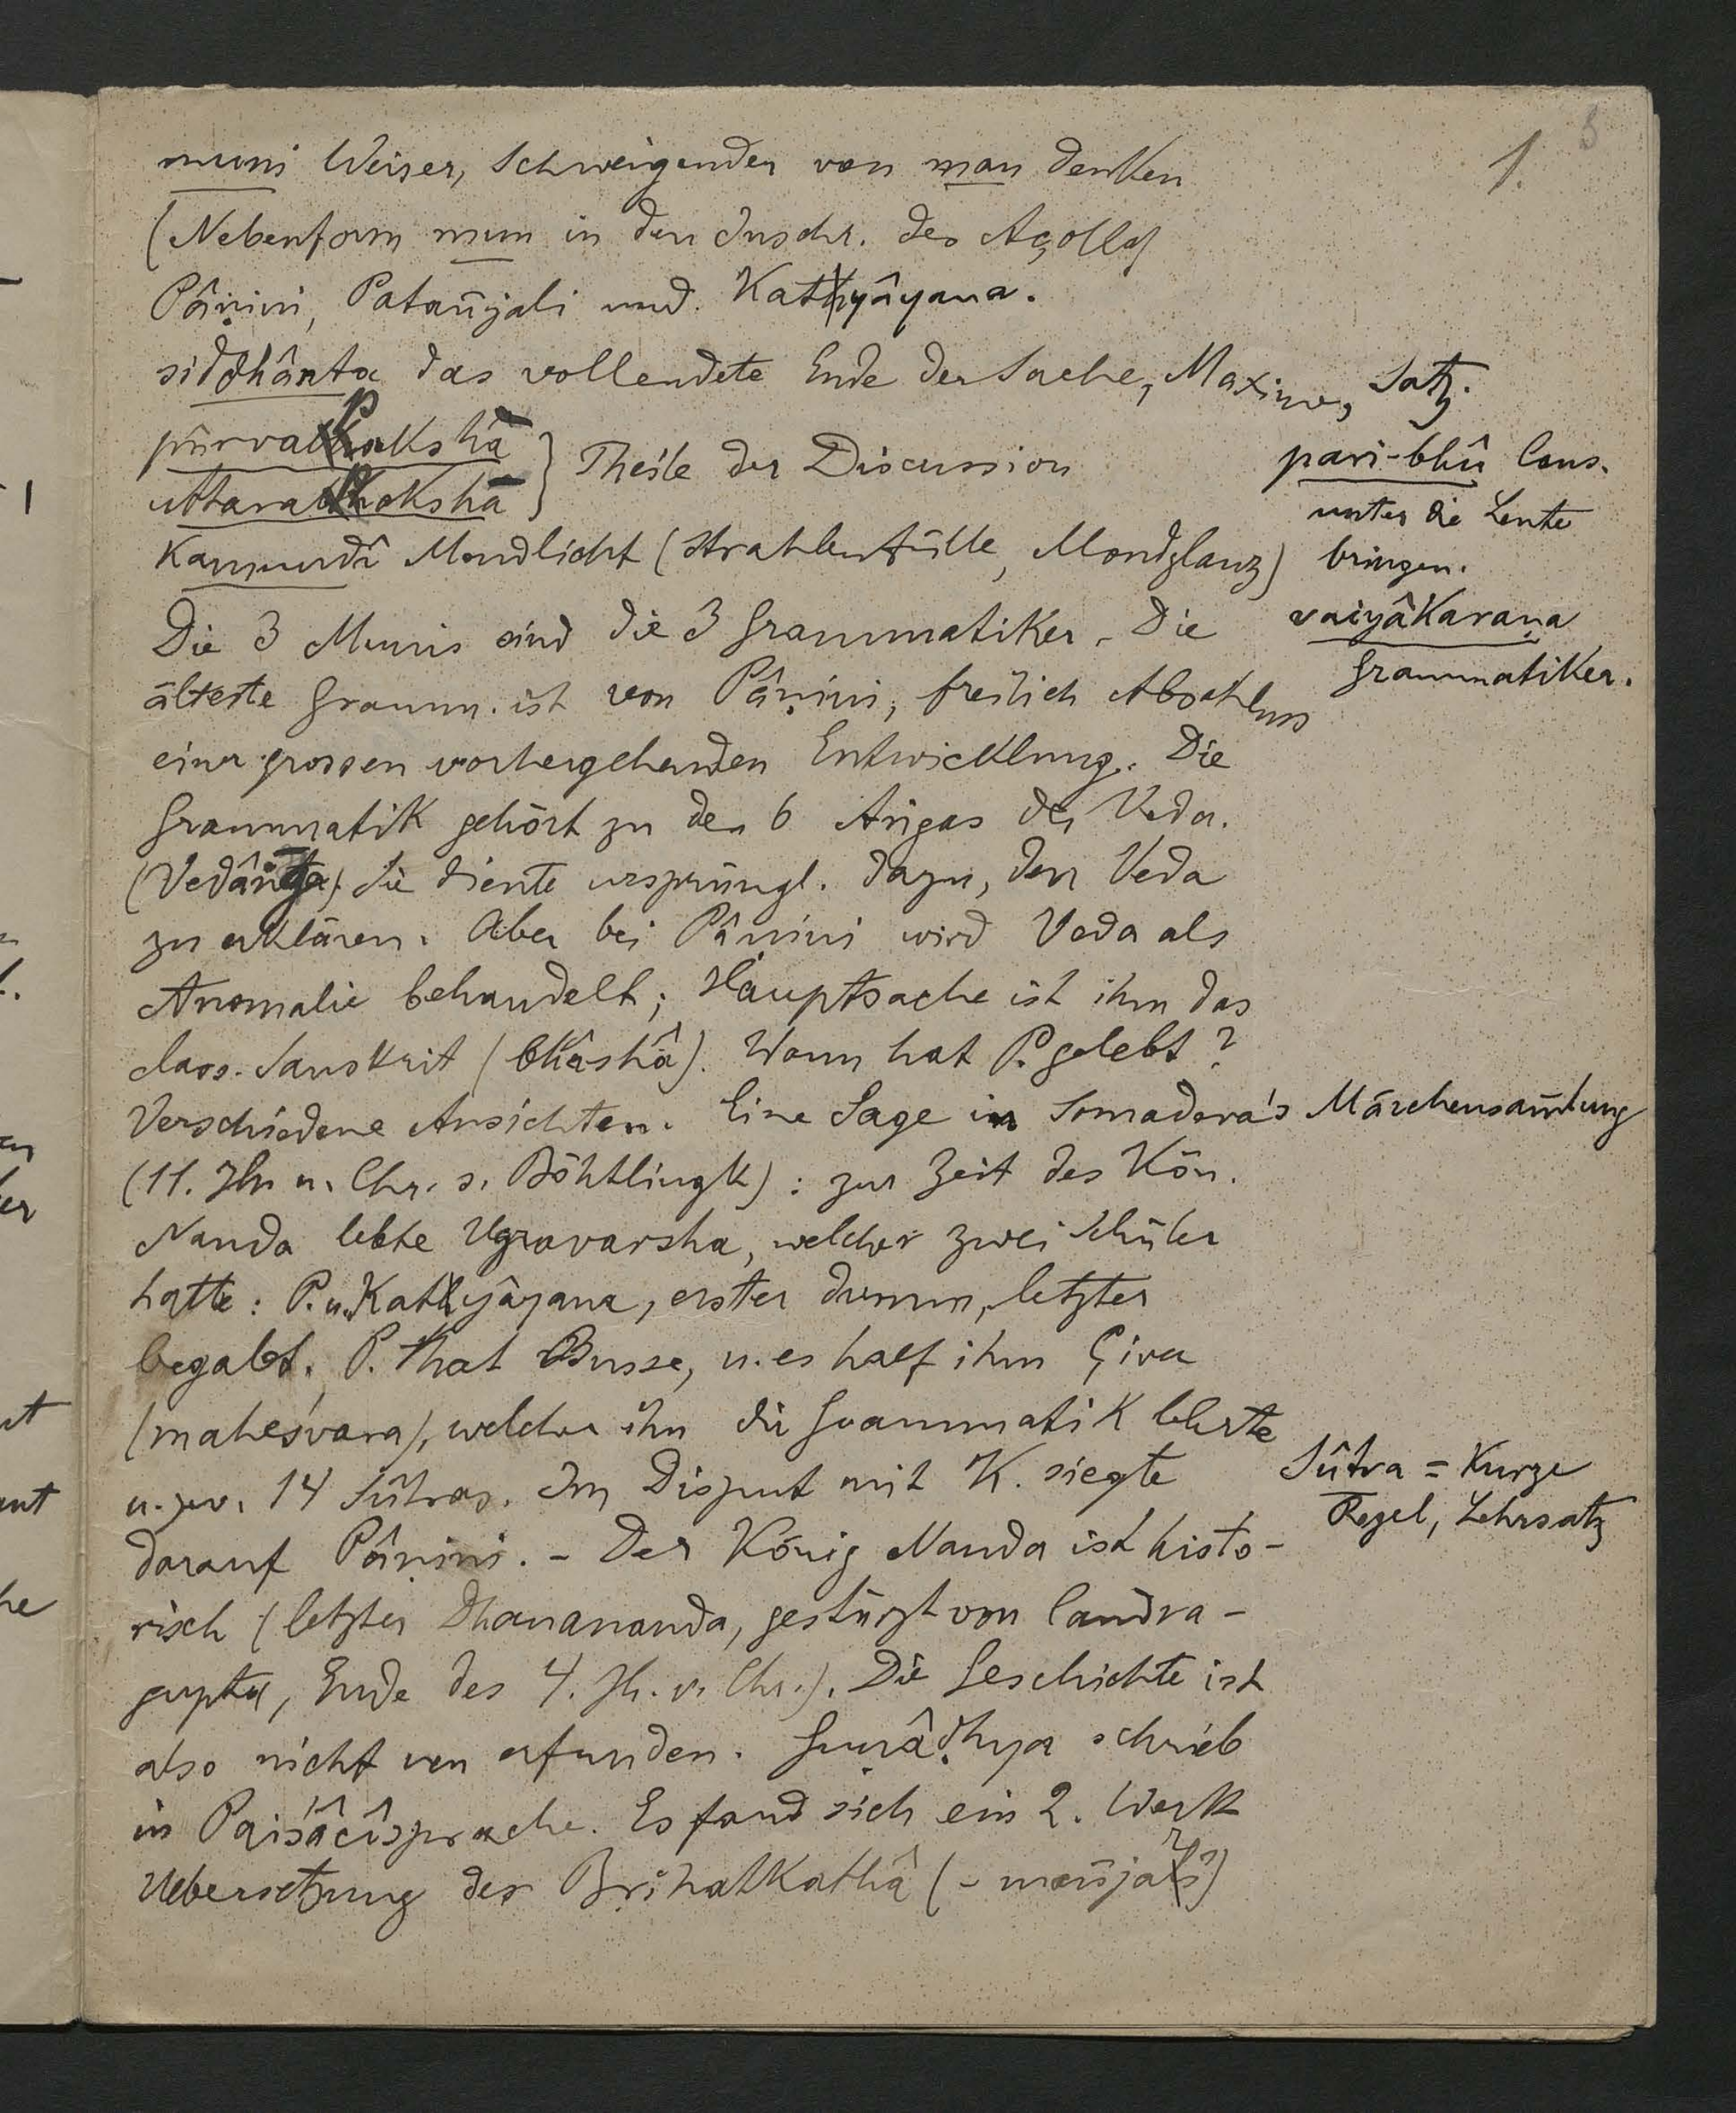 1. 3
muni Weiser, Schweigender von man denken
(Nebenform mun in den Inschr. des Açoka)
Pâṇini, Patañjali und Katyâyana.
siddhânta das vollendete Ende der Sache, Maxime, Satz.
pûrvapaksha
uttarapaksha } Theile der Discussion
Kaumudî Mondlicht (Strahlenfülle, Mondglanz)
pari-bhû Caus.
unter die Leute
bringen.
vaiyâkaraṇa
Grammatiker.
Die 3 Munis sind die 3 Grammatiker. Die
älteste Gramm. ist von Pâṇini, freilich Abschluss
einer grossen vorhergehenden Entwicklung. Die
Grammatik gehört zu den 6 Aṅgas des Veda.
(Vedâṅga). Sie diente ursprüngl. dazu, den Veda
zu erklären. Aber bei Pâṇini wird Veda als
Anomalie behandelt; Hauptsache ist ihm das
class. Sanskrit (bhâshâ). Wann hat P. gelebt?
Verschiedene Ansichten. Eine Sage in Somadeva's Märchensam̄lung
(11. Jh. n. Chr. s. Böhtlingk): zur Zeit des Kön.
Nanda lebte Ugravarsha, welcher zwei Schüler
hatte: P. u. Katyâyana, erster dumm, letzter
begabt. P. that Busse, u. es half ihm Çiva
(maheśvara), welcher ihn die Grammatik lehrte
u. zw. 14 Sûtras. Im Disput mit K. siegte
Sûtra = Kurze
Regel, Lehrsatz
darauf Pâṇini. – Der König Nanda ist histo-
risch (letzter Dhanananda, gestürzt von Candra-
gupta, Ende des 4. Jh. v. Chr.). Die Geschichte ist
also nicht erfunden. Guṇâḍhya schrieb
in Paiśâcîsprache. Es fand sich ein 2. Werk
Uebersetzung der Bṛihatkathâ (-mañjarî)